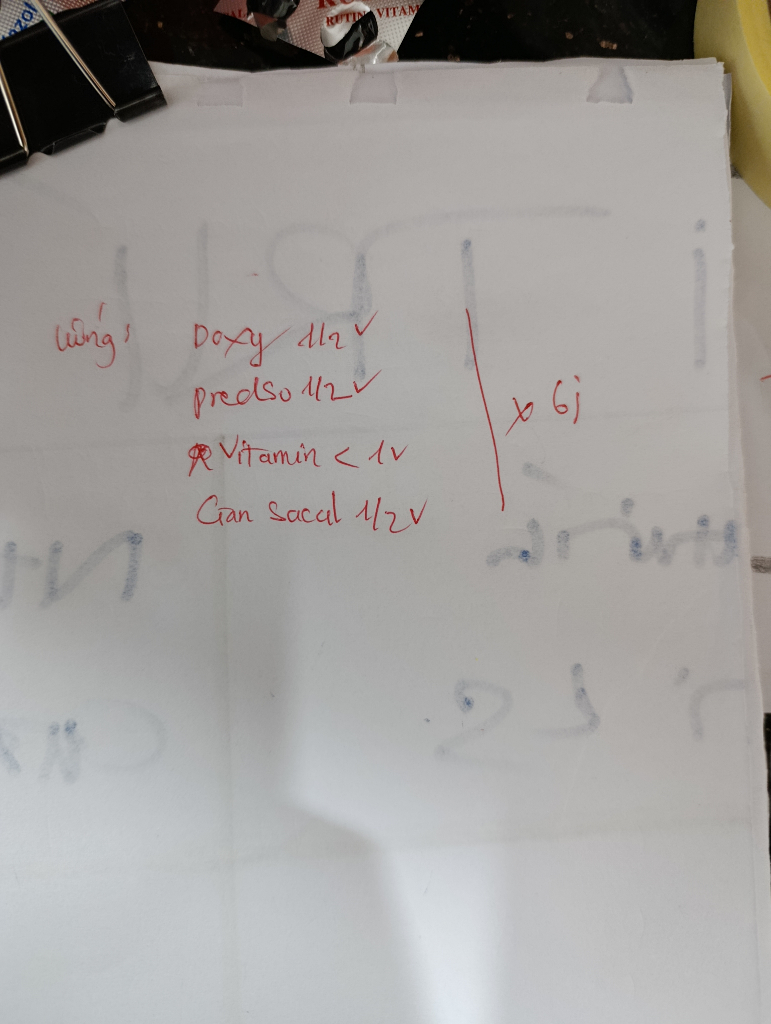 RUTIN VITAM
uống: Doxy 1/2 v
predso 1/2 v
Vitamin < 1 v
Gan sacul 1/2 v
x 6j